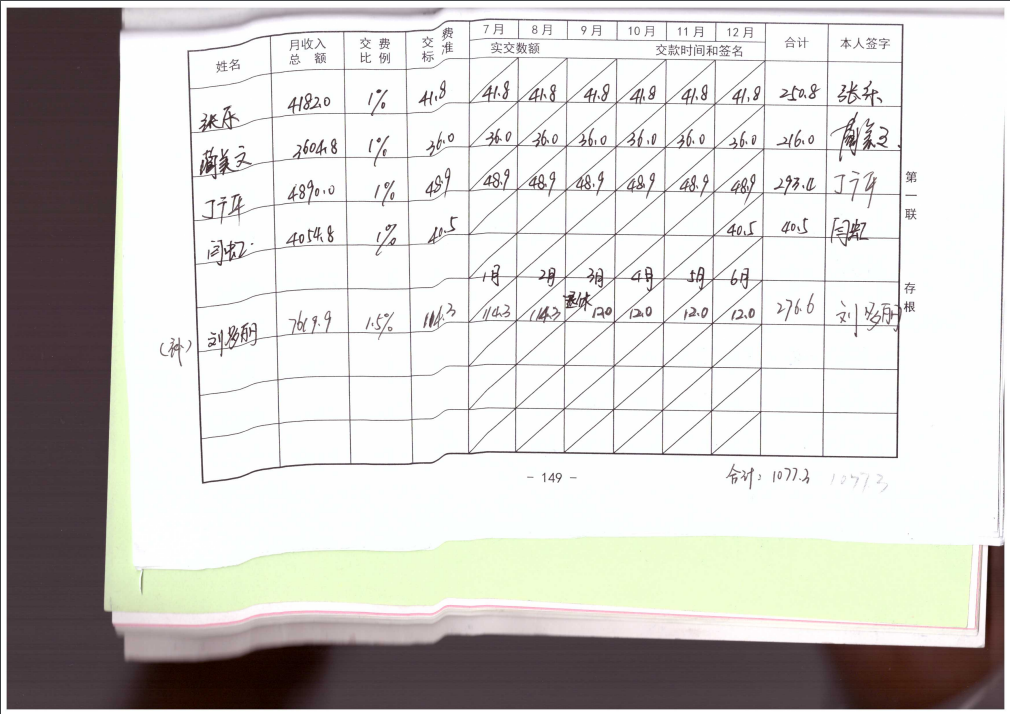 姓名 月收入总额 交费比例 交费标准 7月 8月 9月 10月 11月 12月 合计 本人签字
实交数额 交款时间和签名
张乐 4182.0 1% 41.8 41.8 41.8 41.8 41.8 41.8 41.8 250.8 张乐
蔺美文 3604.8 1% 36.0 36.0 36.0 36.0 36.0 36.0 36.0 216.0 蔺美文
丁宁军 4890.0 1% 48.9 48.9 48.9 48.9 48.9 48.9 48.9 293.4 丁宁军
闫虹 4054.8 1% 40.5 40.5 40.5 闫虹
1月 2月 3月 4月 5月 6月
退休
(补) 刘多丽 7619.9 1.5% 114.3 114.3 114.3 12.0 12.0 12.0 12.0 276.6 刘多丽
第一联
存根
- 149 -
合计: 1077.3 1077.3